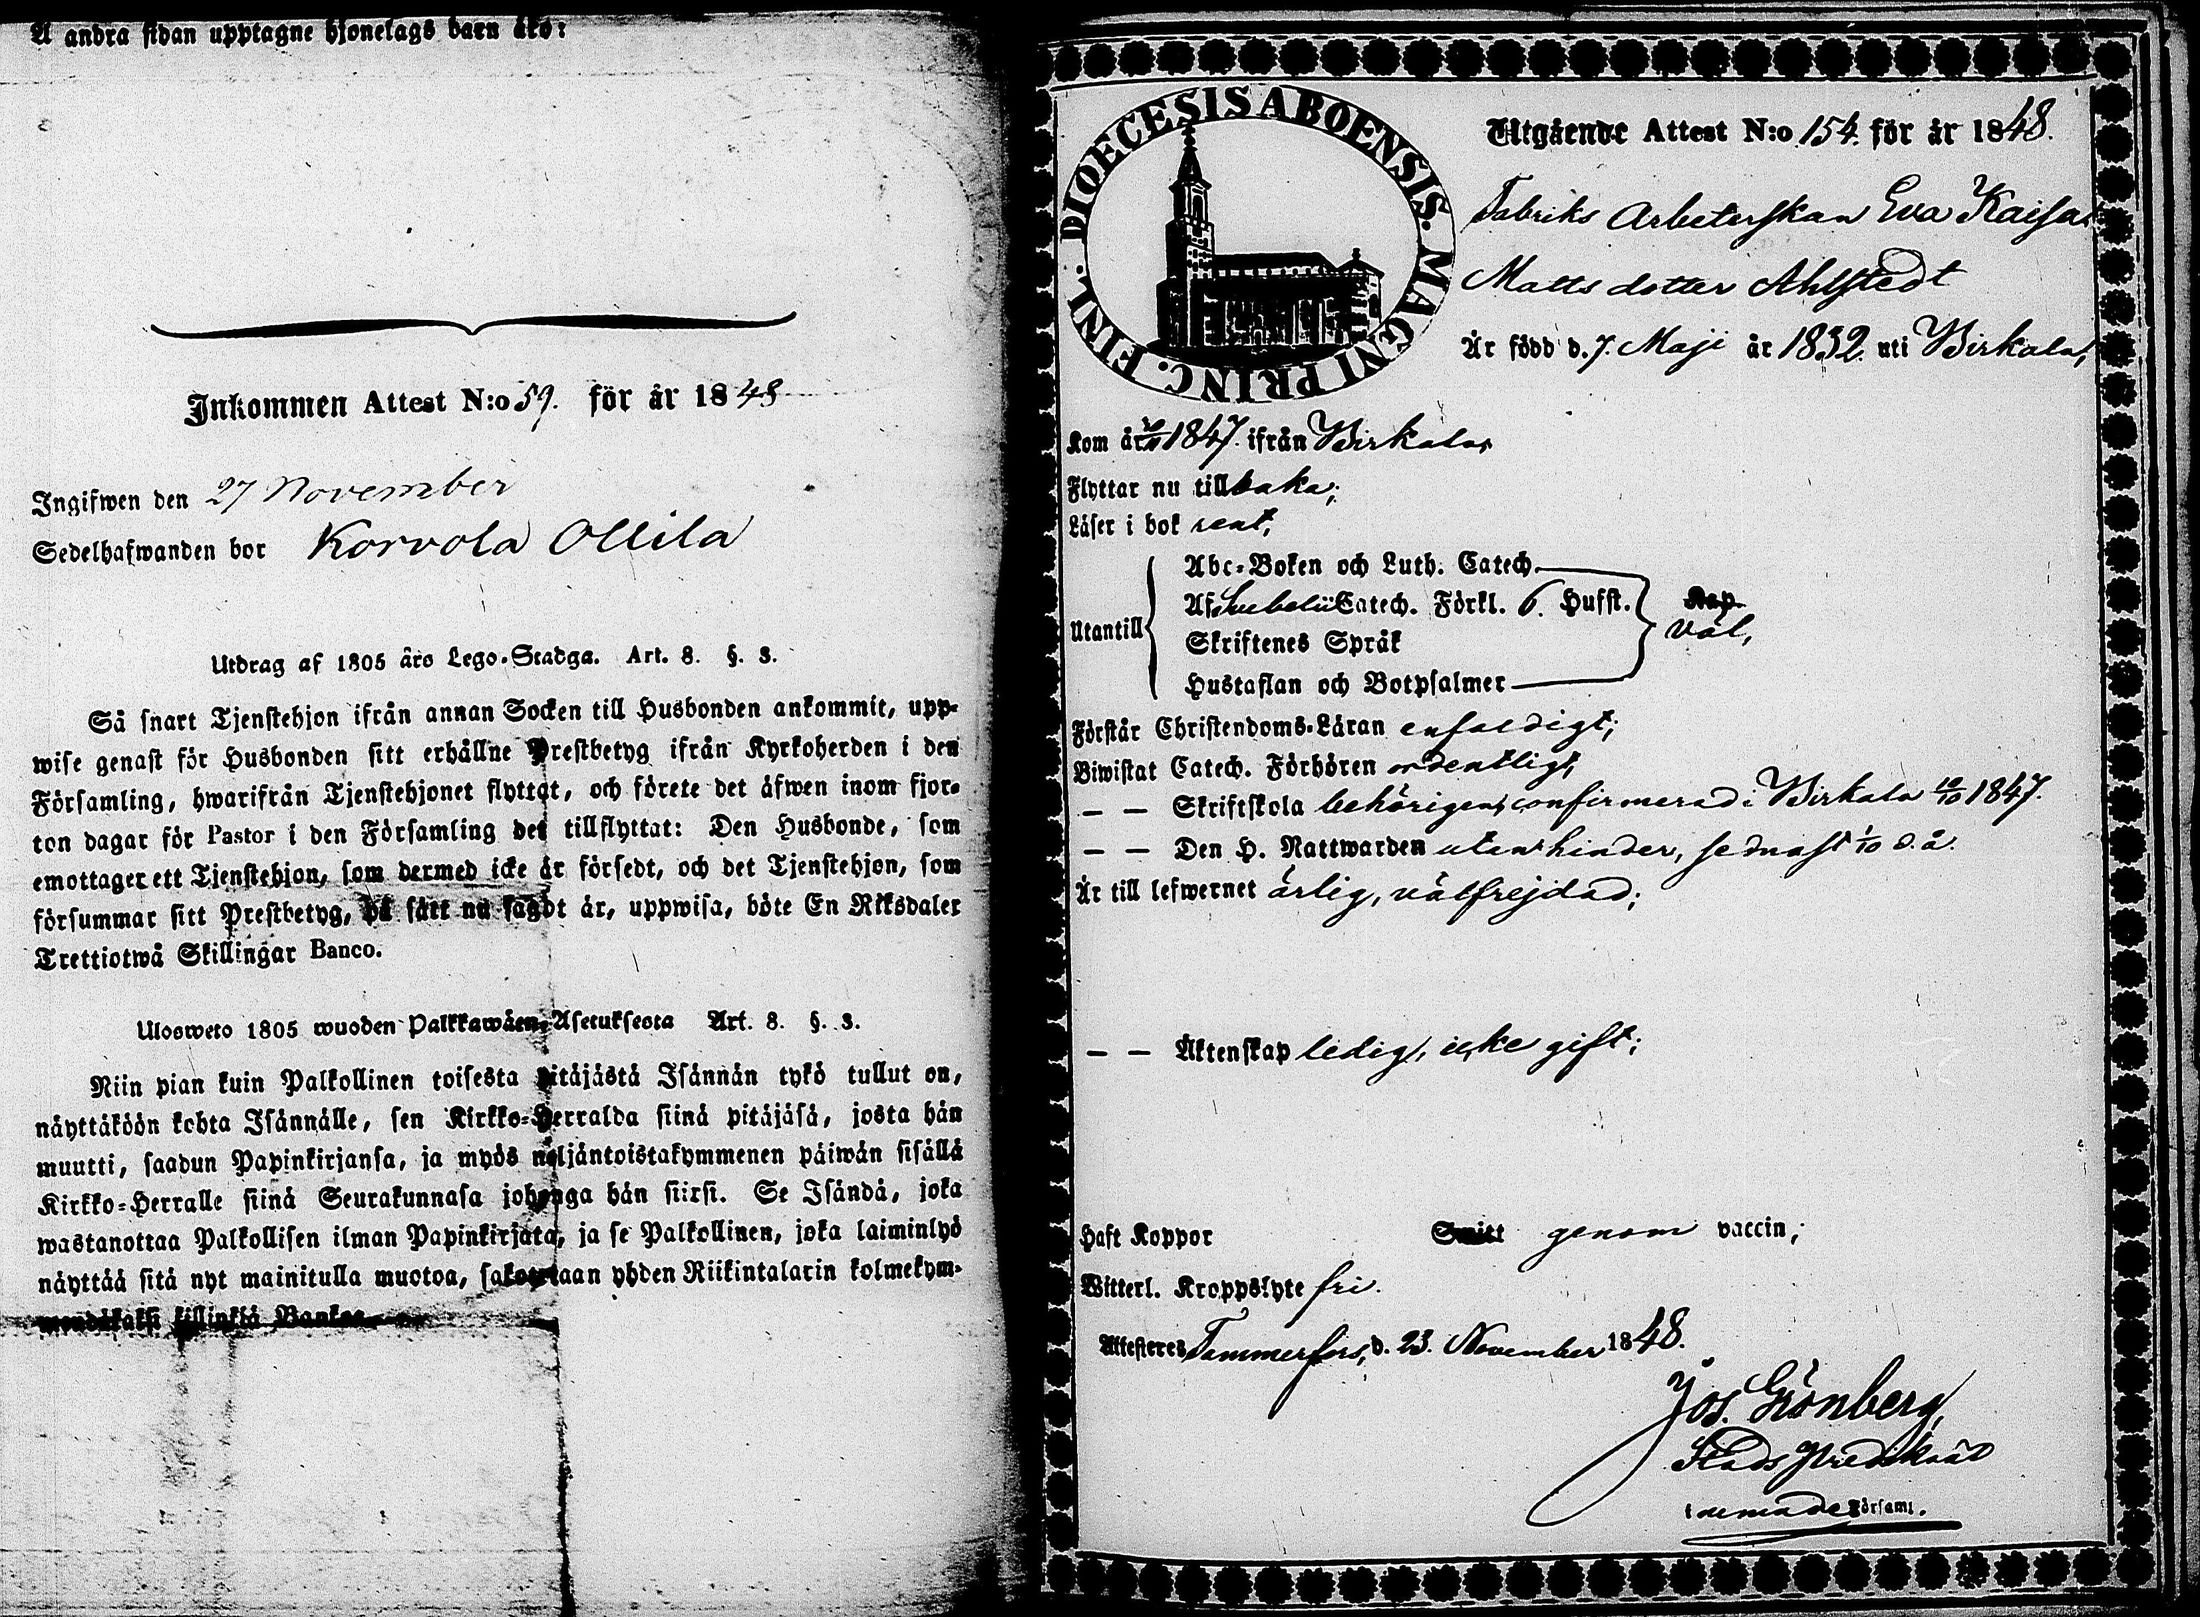 Å andra sidan upptagne hjonelags barn äro:
Inkommen Attest N:o 59. för år 1848
Ingifwen den 27 November
Sedelhafwanden bor Korvola Ollila
Utdrag af 1805 års Lego-Stadga. Art. 8. §. 3.
Så snart Tjenstehjon ifrån annan Socken till Husbonden ankommit, upp-
wise genast för Husbonden sitt erhållne Prestbetyg ifrån Kyrkoherden i den
Församling, hwarifrån Tjenstehjonet flyttat, och förete det äfwen inom fjor-
ton dagar för Pastor i den Församling det tillflyttat: Den Husbonde, som
emottager ett Tjenstehjon, som dermed icke är försedt, och det Tjenstehjon, som
försummar sitt Prestbetyg, på sätt nu sagdt är, uppwisa, böte En Riksdaler
Trettiotwå Skillingar Banco.
Ulosweto 1805 wuoden Palkkawäen-Asetuksesta Art. 8. §. 3.
Niin pian kuin Palkollinen toisesta pitäjästä Isännän tykö tullut on,
näyttäköön kohta Isännälle, sen Kirkko-Herralda siinä pitäjäsä, josta hän
muutti, saadun Papinkirjansa, ja myös neljäntoistakymmenen päiwän sisällä
Kirkko-Herralle siinä Seurakunnasa johonga hän siirsi. Se Isändä, joka
wastanottaa Palkollisen ilman Papinkirjata, ja se Palkollinen, joka laiminlyö
näyttää sitä nyt mainitulla muotoa, sakotetaan yhden Riikintalarin kolmekym-
mendäkaksi killinkiä Bankos.
DIOECESIS ABOENSIS. MAGNI PRINC. FINL.
Utgående Attest N:o 154. för år 1848.
Fabriks Arbeterskan Eva Kaisa
Matts dotter Ahlstedt
Är född d. 7. Maji år 1832. uti Birkala,
Kom år 1847. ifrån Birkala,
Flyttar nu tillbaka;
Läser i bok rent,
Utantill
Abc-Boken och Luth. Catech.
Af Svebelii Catech. Förkl. 6. Hufst.
Skriftenes Språk
Hustaflan och Botpsalmer
väl,
Förstår Christendoms-Läran enfaldigt;
Biwistat Catech. Förhören ordentligt,
— — Skriftskola behörigen, confirmerad i Birkala 10/10 1847.
— — Den H. Nattwarden utan hinder, sednast 1/10 d.å.
Är till lefwernet ärlig, välfrejdad;
— — Äktenskap ledig, icke gift;
Haft Koppor Smitt genom vaccin;
Witterl. Kroppslyte fri.
Attesteres Tammerfors, d. 23. November 1848.
Jos. Grönberg,
Stads Predikant